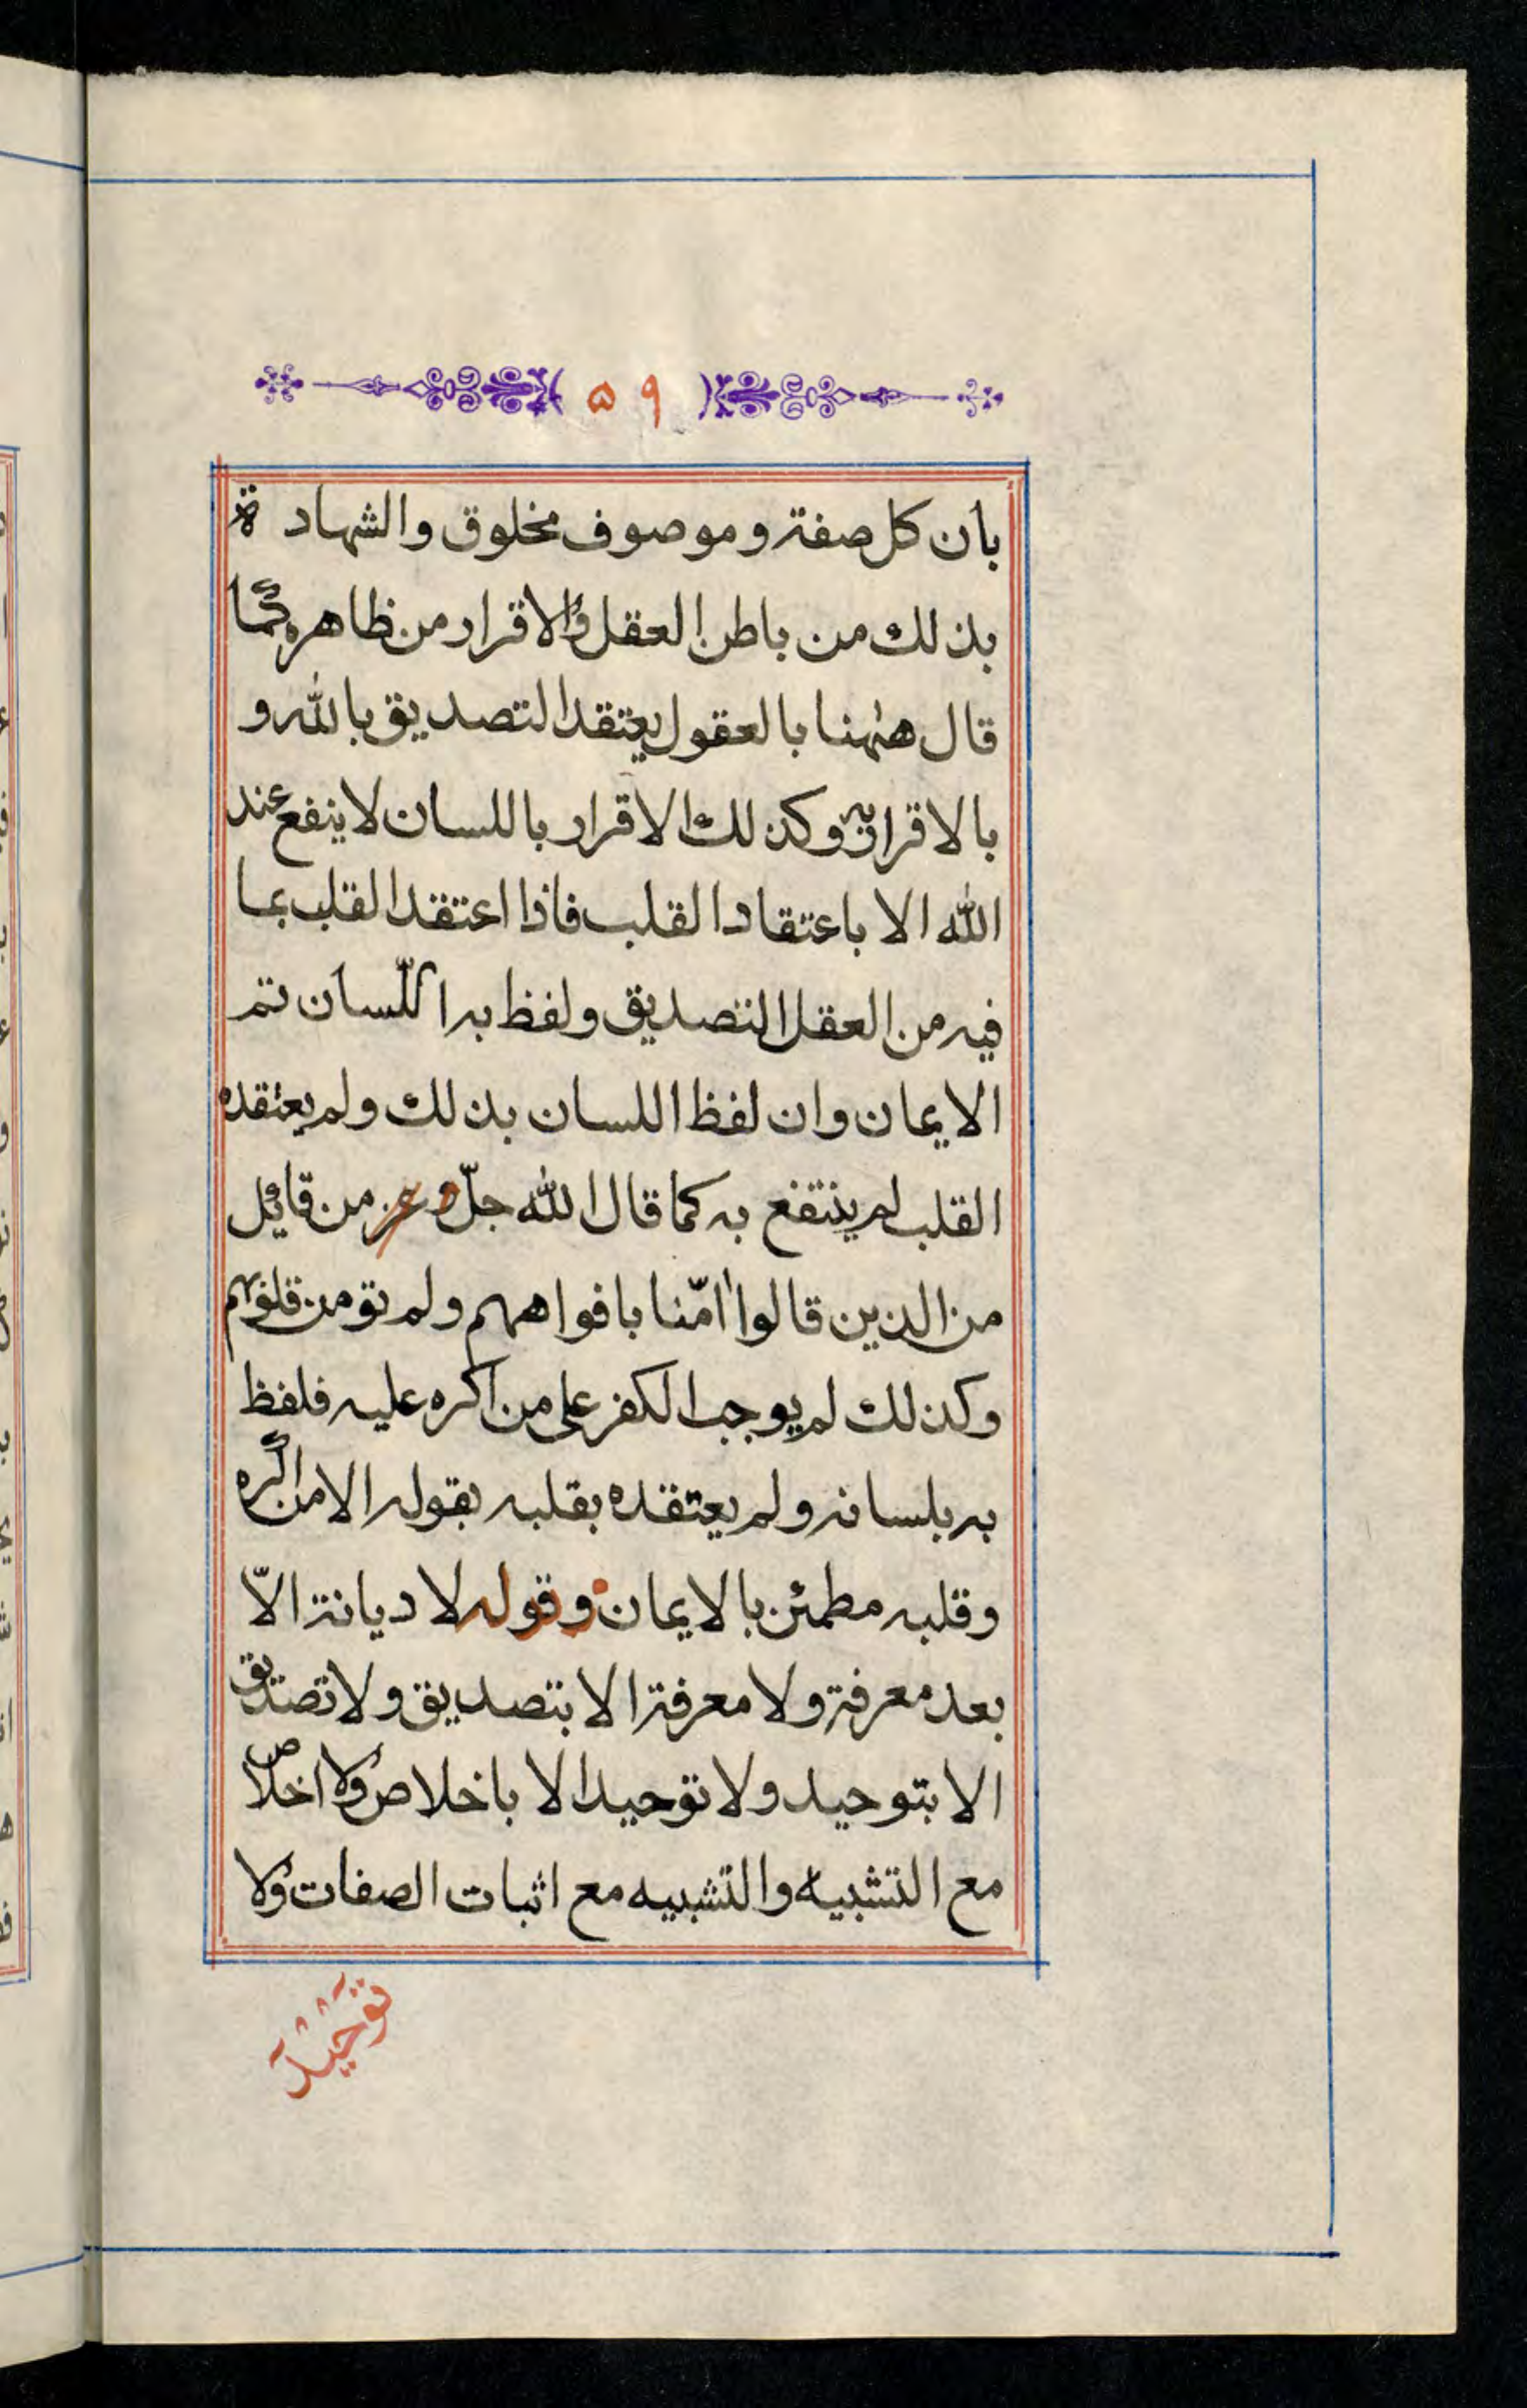 ۵۹
بان كل صفة وموصوف مخلوق والشهادة
بذلك من باطن العقل والاقرار من ظاهره كما
قال ههنا بالعقول يعتقد التصديق بالله و
بالاقرار به وكذلك الاقرار باللسان لا ينفع عند
الله الا باعتقاد القلب فاذا اعتقد القلب بما
فيه من العقل التصديق ولفظ به اللّسان تم
الايمان وان لفظ اللسان بذلك ولم يعتقده
القلب لم ينتفع به كما قال الله جلّ وعز من قائل
من الذين قالوا اٰمنّا بافواههم ولم تؤمن قلوبهم
وكذلك لم يوجب الكفر على من اكره عليه فلفظ
به بلسانه ولم يعتقده بقلبه بقوله الا من اكره
وقلبه مطمئن بالايمان وقوله لا ديانة الاّ
بعد معرفة ولا معرفة الا بتصديق ولا تصديق
الا بتوحيد ولا توحيد الا باخلاص ولا اخلاص
مع التشبيه والتشبيه مع اثبات الصفات ولا
توحيد